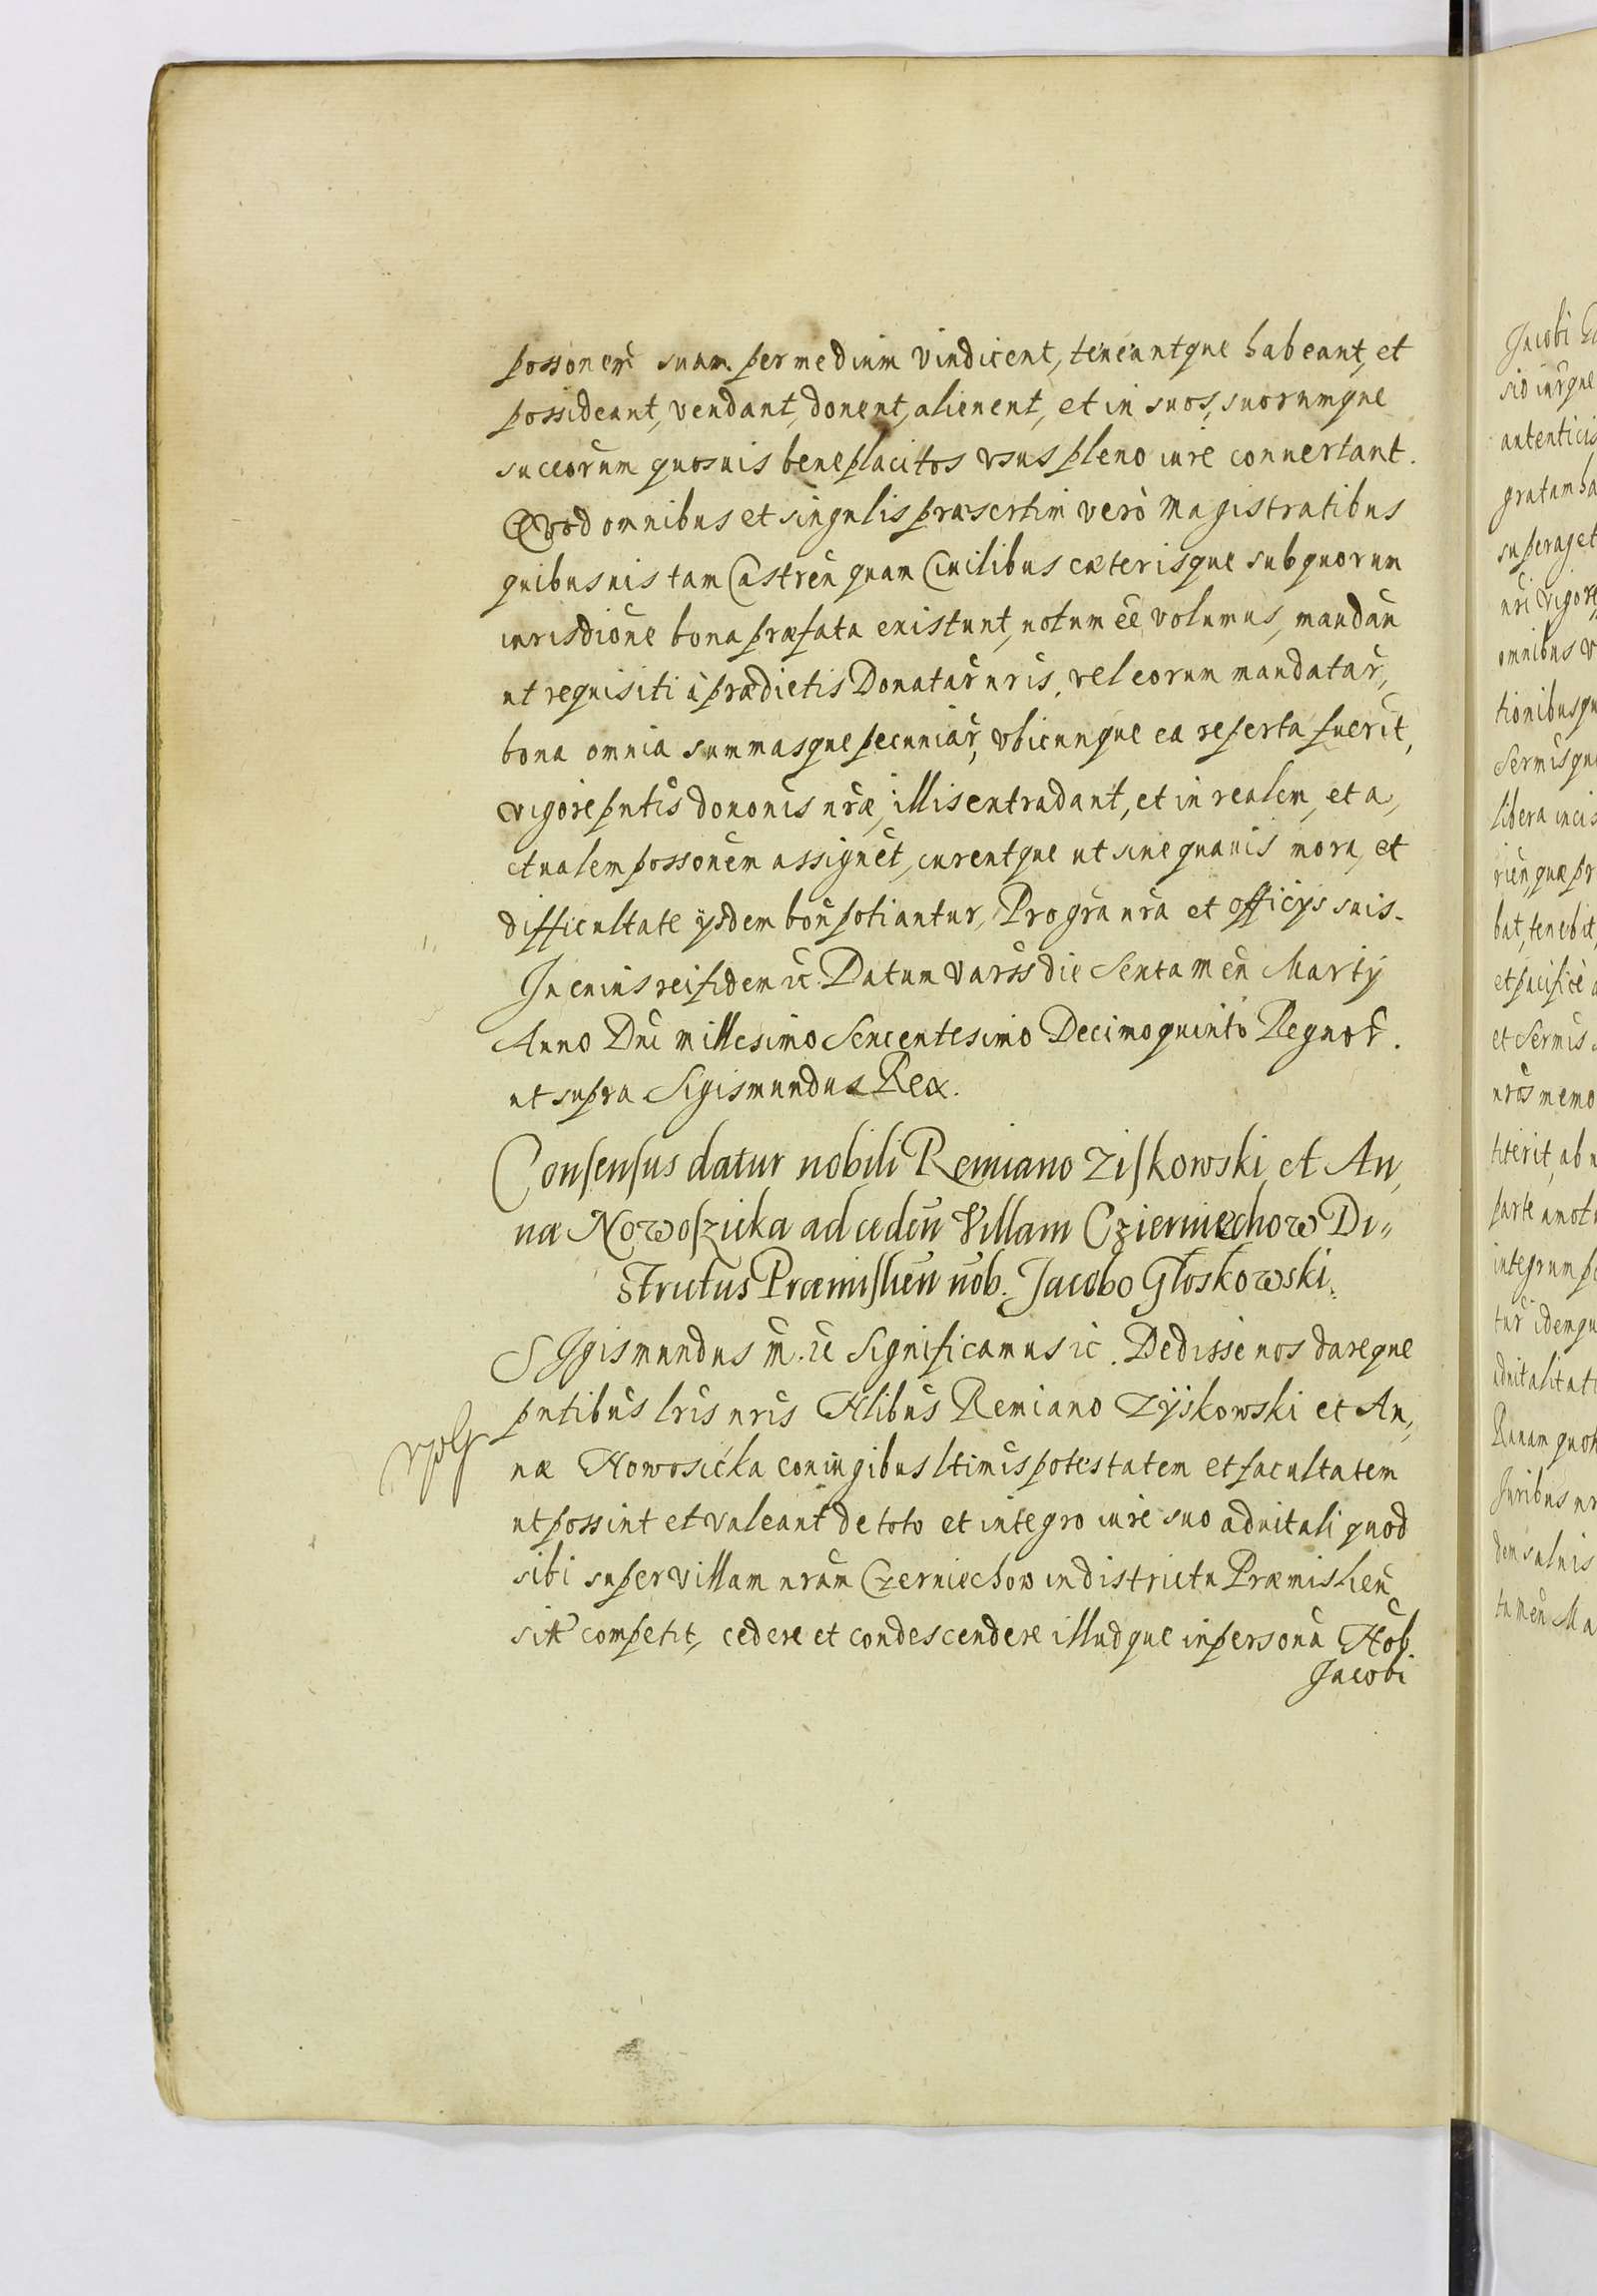 possonem suam per medium vindicent, teneantque habeant, et
possideant, vendant, donent, alienent, et in suos, suorumque
succorum quosuis beneplacitos vsus pleno iure conuertant.
Quod omnibus et singulis præsertim verò Magistratibus
quibusuis tam Castren̄ quam Ciuilibus cæterisque sub quorum
iurisdione bona præfata existunt, notum ēē volumus, mandan̄
ut requisiti à prædictis Donatar̄ nris, vel eorum mandatar̄,
bona omnia summasque pecuniar̄, vbicunque ea reperta fuerit,
vigore pntis dononis nræ, illis extradant, et in realem, et a,
ctualem possonem assignet, curentque ut sine quauis mora, et
difficultate ijsdem bon̄ potiantur, Pro gra nra et officijs suis.
In cuius rei fidem ic Datum Varss die Sexta Men̄ Martij
Anno Dni Millesimo Sexcentesimo Decimoquinto Regnor̄.
ut supra Sigismundus Rex.
Consensus datur nobili Remiano Ziskowski, et An,
næ Nowoszicka ad ceden̄ Villam Czierniechow Di„
strictus Præmislien̄ nob. Jacobo Głoskowski.
SIgismundus m̄. ic Significamus ic. Dedisse nos dareque
pntibus lris nris Nlibus Remiano Zyskowski et An,,
næ Nowosicka coniugibus ltimis potestatem et facultatem
ut possint et valeant de toto et integro iure suo aduitali quod
sibi super villam nram Czerniechow in districtu Præmislien̄
sitt competit, cedere et condescendere illudque in persona Nob.
Jacobi
Jacobi
autenticis
omnibus
tionibusqu
libera
bat, tenebit,
et Sermis
nros memo
titerit, ab
parte amot
integrum
idemqu
aduitalitat
Juribus nr
dem saluis